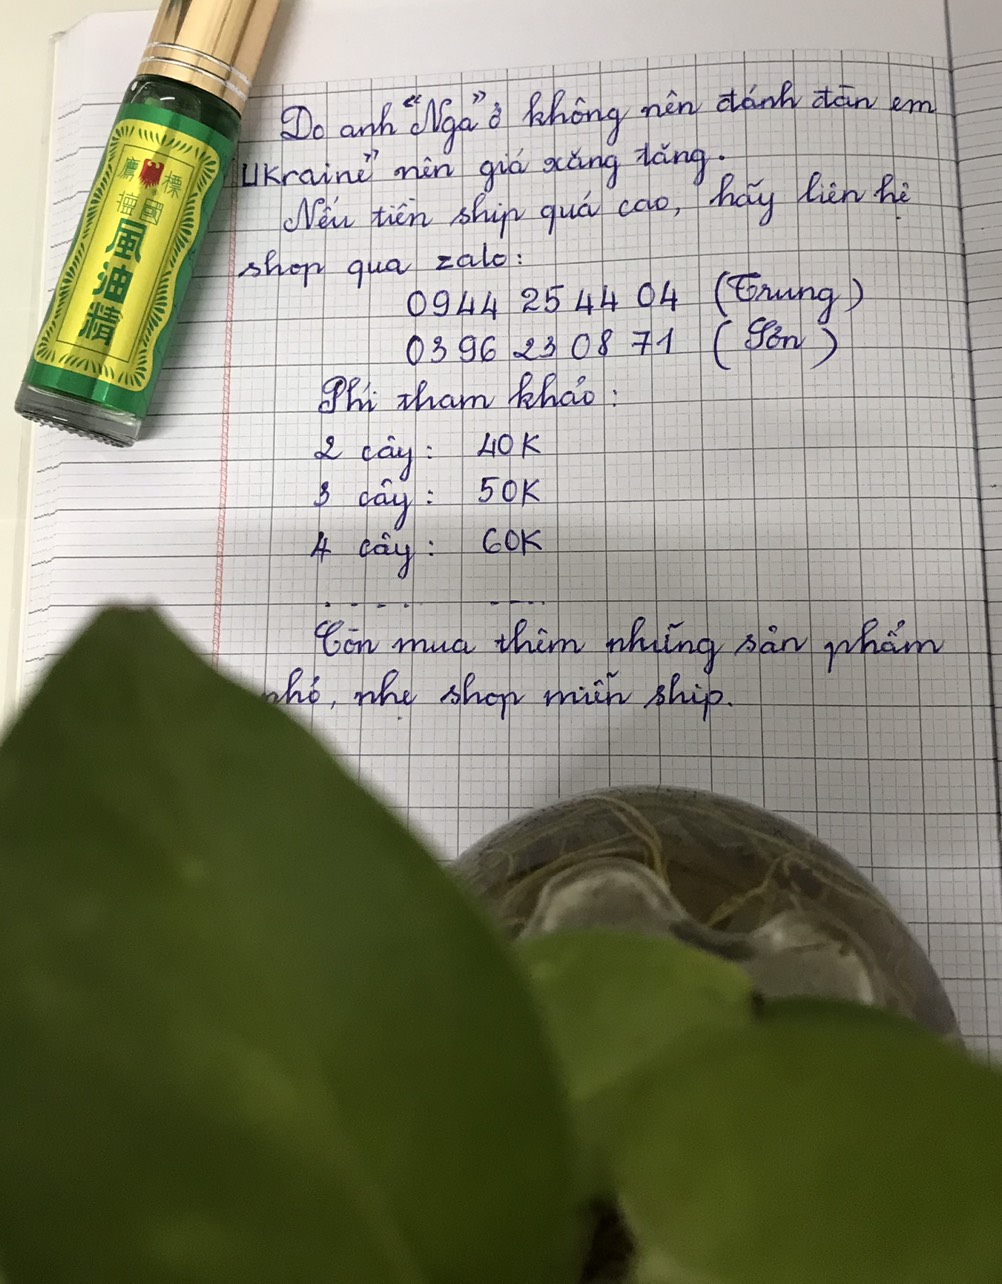 鷹標
國
風
油
精
Do anh “Nga” ở không nên đánh đàn em
Ukraine” nên giá xăng tăng.
Nếu tiền ship quá cao, hãy liên hệ
shop qua zalo:
0944 25 44 04 (Trung)
0396 23 08 71 (Sơn)
Phí tham khảo:
2 cây: 40K
3 cây: 50K
4 cây: 60K
..... ....
Còn mua thêm những sản phẩm
nhỏ, nhẹ shop miễn ship.